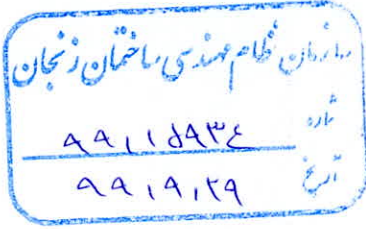 سازمان نظام مهندسی ساختمان زنجان
شماره ۹۹,۱۵۹۳۴
تاریخ ۹۹,۹,۲۹